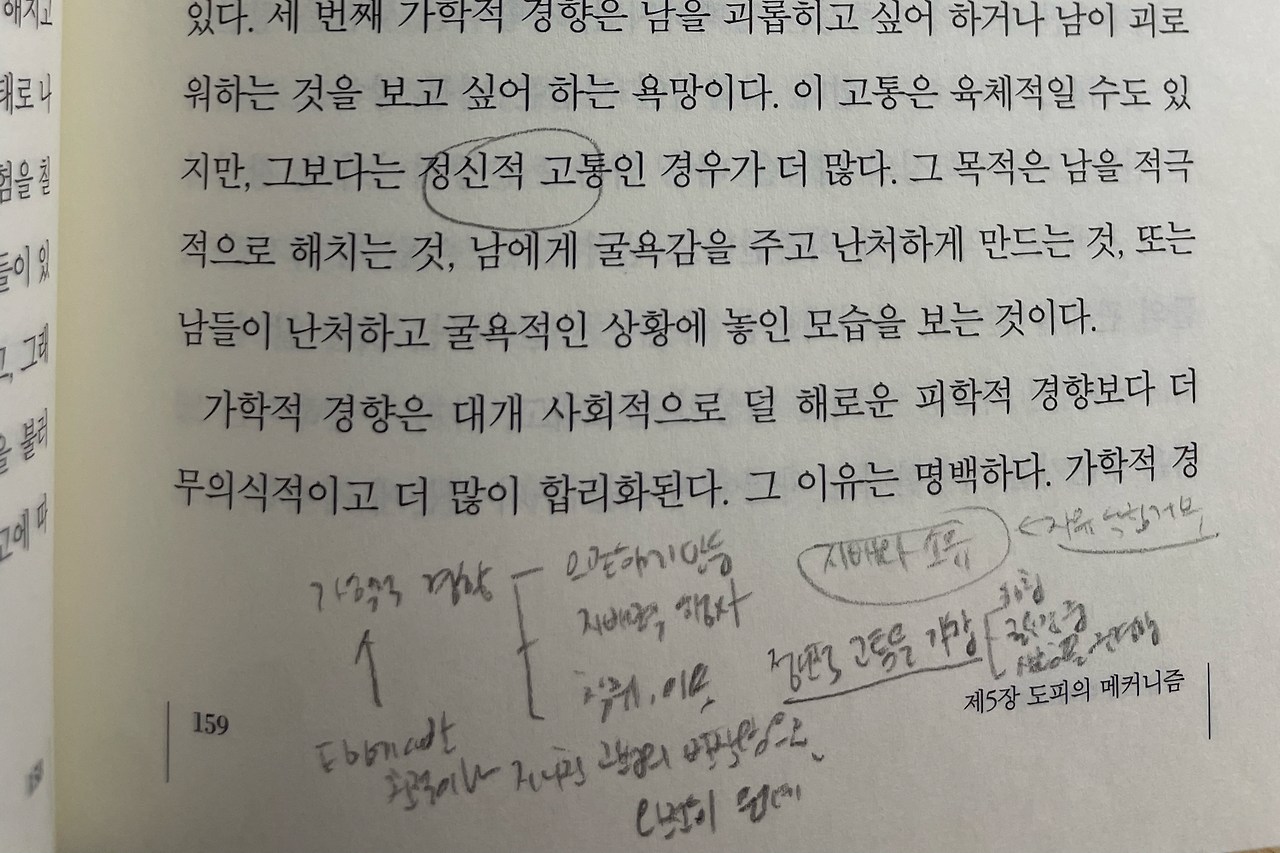 해치고
태로 나
험을 칠
들이 있
고, 그래
을 불러
고에 따
있다. 세 번째 가학적 경향은 남을 괴롭히고 싶어 하거나 남이 괴로
워하는 것을 보고 싶어 하는 욕망이다. 이 고통은 육체적일 수도 있
지만, 그보다는 정신적 고통인 경우가 더 많다. 그 목적은 남을 적극
적으로 해치는 것, 남에게 굴욕감을 주고 난처하게 만드는 것, 또는
남들이 난처하고 굴욕적인 상황에 놓인 모습을 보는 것이다.
가학적 경향은 대개 사회적으로 덜 해로운 피학적 경향보다 더
무의식적이고 더 많이 합리화된다. 그 이유는 명백하다. 가학적 경
가학적 경향
의존하게 만듦
지배력 행사
지배와 소유
정신적 고통을 가함
159
제5장 도피의 메커니즘